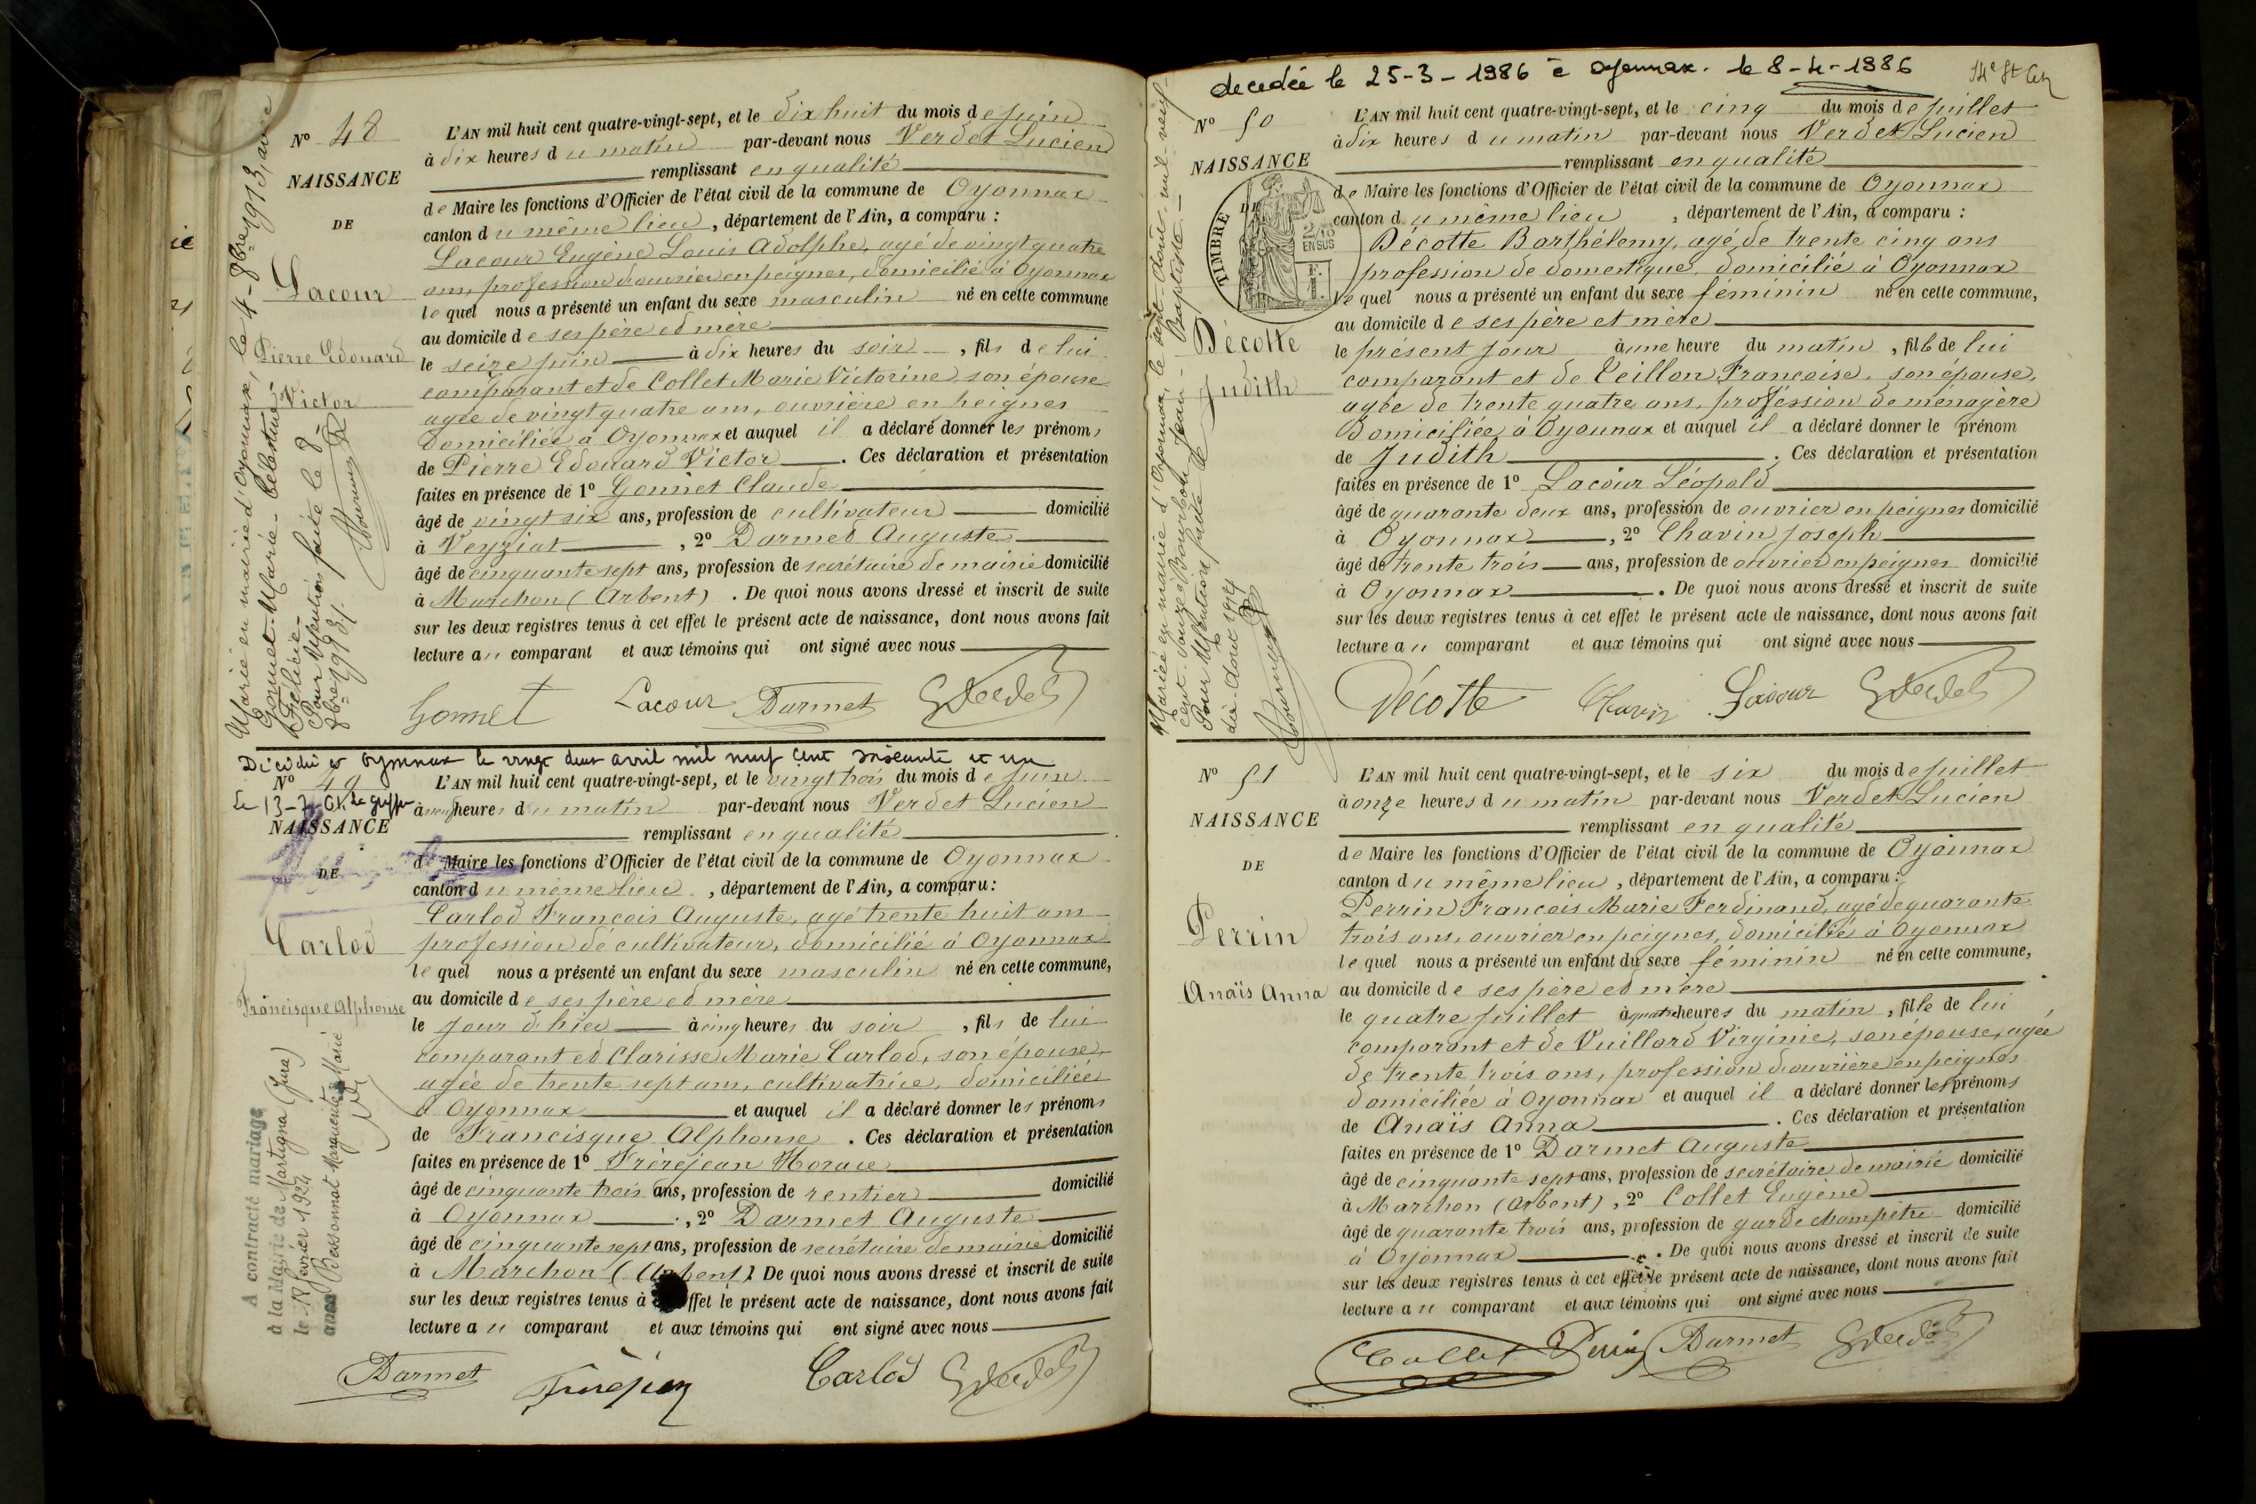 N° 48
NAISSANCE
DE
Lacour
Pierre Edouard
Victor
Marié en mairie d'Oyonnax, le 4-8bre 1913, avec
Gonnet - Marie - Célestine -
Félicie -
Pour Mention faite le 8
8bre 1931.
L'AN mil huit cent quatre-vingt-sept, et le dix huit du mois de juin
à dix heures du matin par-devant nous Verdet Lucien
remplissant en qualité
de Maire les fonctions d'Officier de l'état civil de la commune de Oyonnax
canton du même lieu, département de l'Ain, a comparu :
Lacour Eugène Louis Adolphe, agé de vingt quatre
ans, profession d'ouvrier en peignes, domicilié à Oyonnax
lequel nous a présenté un enfant du sexe masculin né en cette commune
au domicile de ses père et mère
le seize juin à dix heures du soir, fils de lui
comparant et de Collet Marie Victorine son épouse
agée de vingt quatre ans, ouvrière en peignes
domiciliée à Oyonnax et auquel il a déclaré donner les prénoms
de Pierre Edouard Victor. Ces déclaration et présentation
faites en présence de 1° Gonnet Claude
âgé de vingt six ans, profession de cultivateur domicilié
à Veyziat, 2° Darmet Auguste
âgé de cinquante sept ans, profession de secrétaire de mairie domicilié
à Marchon (Arbent). De quoi nous avons dressé et inscrit de suite
sur les deux registres tenus à cet effet le présent acte de naissance, dont nous avons fait
lecture au comparant et aux témoins qui ont signé avec nous
Gonnet Lacour Darmet Verdet
Décédé à Oyonnax le vingt deux avril mil neuf cent soixante et un
N° 49
le 13-7-61. le greffier
NAISSANCE
DE
Carlod
Francisque Alphonse
A contracté mariage
à la Mairie de Martigna (Jura)
le 19 Février 1924
avec Bessonnat Marguerite Marie
L'AN mil huit cent quatre-vingt-sept, et le vingt trois du mois de juin
à neuf heures du matin par-devant nous Verdet Lucien
remplissant en qualité
de Maire les fonctions d'Officier de l'état civil de la commune de Oyonnax
canton du même lieu, département de l'Ain, a comparu :
Carlod François Auguste, agé trente huit ans
profession de cultivateur, domicilié à Oyonnax
lequel nous a présenté un enfant du sexe masculin né en cette commune,
au domicile de ses père et mère
le jour d'hier à cinq heures du soir, fils de lui
comparant et Clarisse Marie Carlod, son épouse,
agée de trente sept ans, cultivatrice, domiciliée
à Oyonnax et auquel il a déclaré donner les prénoms
de Francisque Alphonse. Ces déclaration et présentation
faites en présence de 1° Frèrejean Horace
âgé de cinquante trois ans, profession de rentier domicilié
à Oyonnax, 2° Darmet Auguste
âgé de cinquante sept ans, profession de secrétaire de mairie domicilié
à Marchon (Arbent). De quoi nous avons dressé et inscrit de suite
sur les deux registres tenus à cet effet le présent acte de naissance, dont nous avons fait
lecture au comparant et aux témoins qui ont signé avec nous
Darmet Frèrejean Carlod Verdet
decedée le 25-3-1986 à Oyonnax. le 8-4-1986
N° 50
NAISSANCE
DE
TIMBRE
2/10
EN SUS
Décotte
Judith
Mariée en mairie d'Oyonnax, le
L'AN mil huit cent quatre-vingt-sept, et le cinq du mois de juillet
à dix heures du matin par-devant nous Verdet Lucien
remplissant en qualité
de Maire les fonctions d'Officier de l'état civil de la commune de Oyonnax
canton du même lieu, département de l'Ain, a comparu :
Décotte Barthélemy, agé de trente cinq ans
profession de domestique, domicilié à Oyonnax
lequel nous a présenté un enfant du sexe féminin né en cette commune,
au domicile de ses père et mère
le présent jour à une heure du matin, fille de lui
comparant et de Veillon Françoise, son épouse,
agée de trente quatre ans, profession de ménagère
domiciliée à Oyonnax et auquel il a déclaré donner le prénom
de Judith. Ces déclaration et présentation
faites en présence de 1° Lacour Léopold
âgé de quarante deux ans, profession de ouvrier en peignes domicilié
à Oyonnax, 2° Chavin Joseph
âgé de trente trois ans, profession de ouvrier en peignes domicilié
à Oyonnax. De quoi nous avons dressé et inscrit de suite
sur les deux registres tenus à cet effet le présent acte de naissance, dont nous avons fait
lecture au comparant et aux témoins qui ont signé avec nous
Décotte Chavin Lacour Verdet
N° 51
NAISSANCE
DE
Perrin
Anaïs Anna
L'AN mil huit cent quatre-vingt-sept, et le six du mois de juillet
à onze heures du matin par-devant nous Verdet Lucien
remplissant en qualité
de Maire les fonctions d'Officier de l'état civil de la commune de Oyonnax
canton du même lieu, département de l'Ain, a comparu :
Perrin François Marie Ferdinand, agé de quarante
trois ans, ouvrier en peignes, domicilié à Oyonnax
lequel nous a présenté un enfant du sexe féminin né en cette commune,
au domicile de ses père et mère
le quatre juillet à quatre heures du matin, fille de lui
comparant et de Vuillard Virginie, son épouse, agée
de trente trois ans, profession d'ouvrière en peignes
domiciliée à Oyonnax et auquel il a déclaré donner les prénoms
de Anaïs Anna. Ces déclaration et présentation
faites en présence de 1° Darmet Auguste
âgé de cinquante sept ans, profession de secrétaire de mairie domicilié
à Marchon (Arbent), 2° Collet Eugène
âgé de quarante trois ans, profession de garde champêtre domicilié
à Oyonnax. De quoi nous avons dressé et inscrit de suite
sur les deux registres tenus à cet effet le présent acte de naissance, dont nous avons fait
lecture au comparant et aux témoins qui ont signé avec nous
Collet Perrin Darmet Verdet